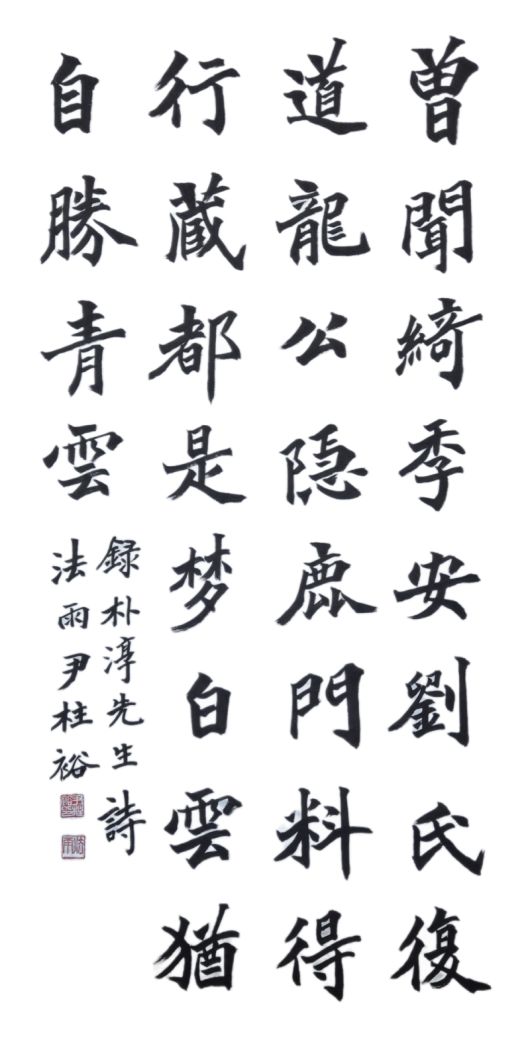 曽聞綺季安劉氏復
道龍公隐鹿門料得
行蔵都是梦白雲猶
自勝青雲
録朴淳先生詩
法雨尹柱裕